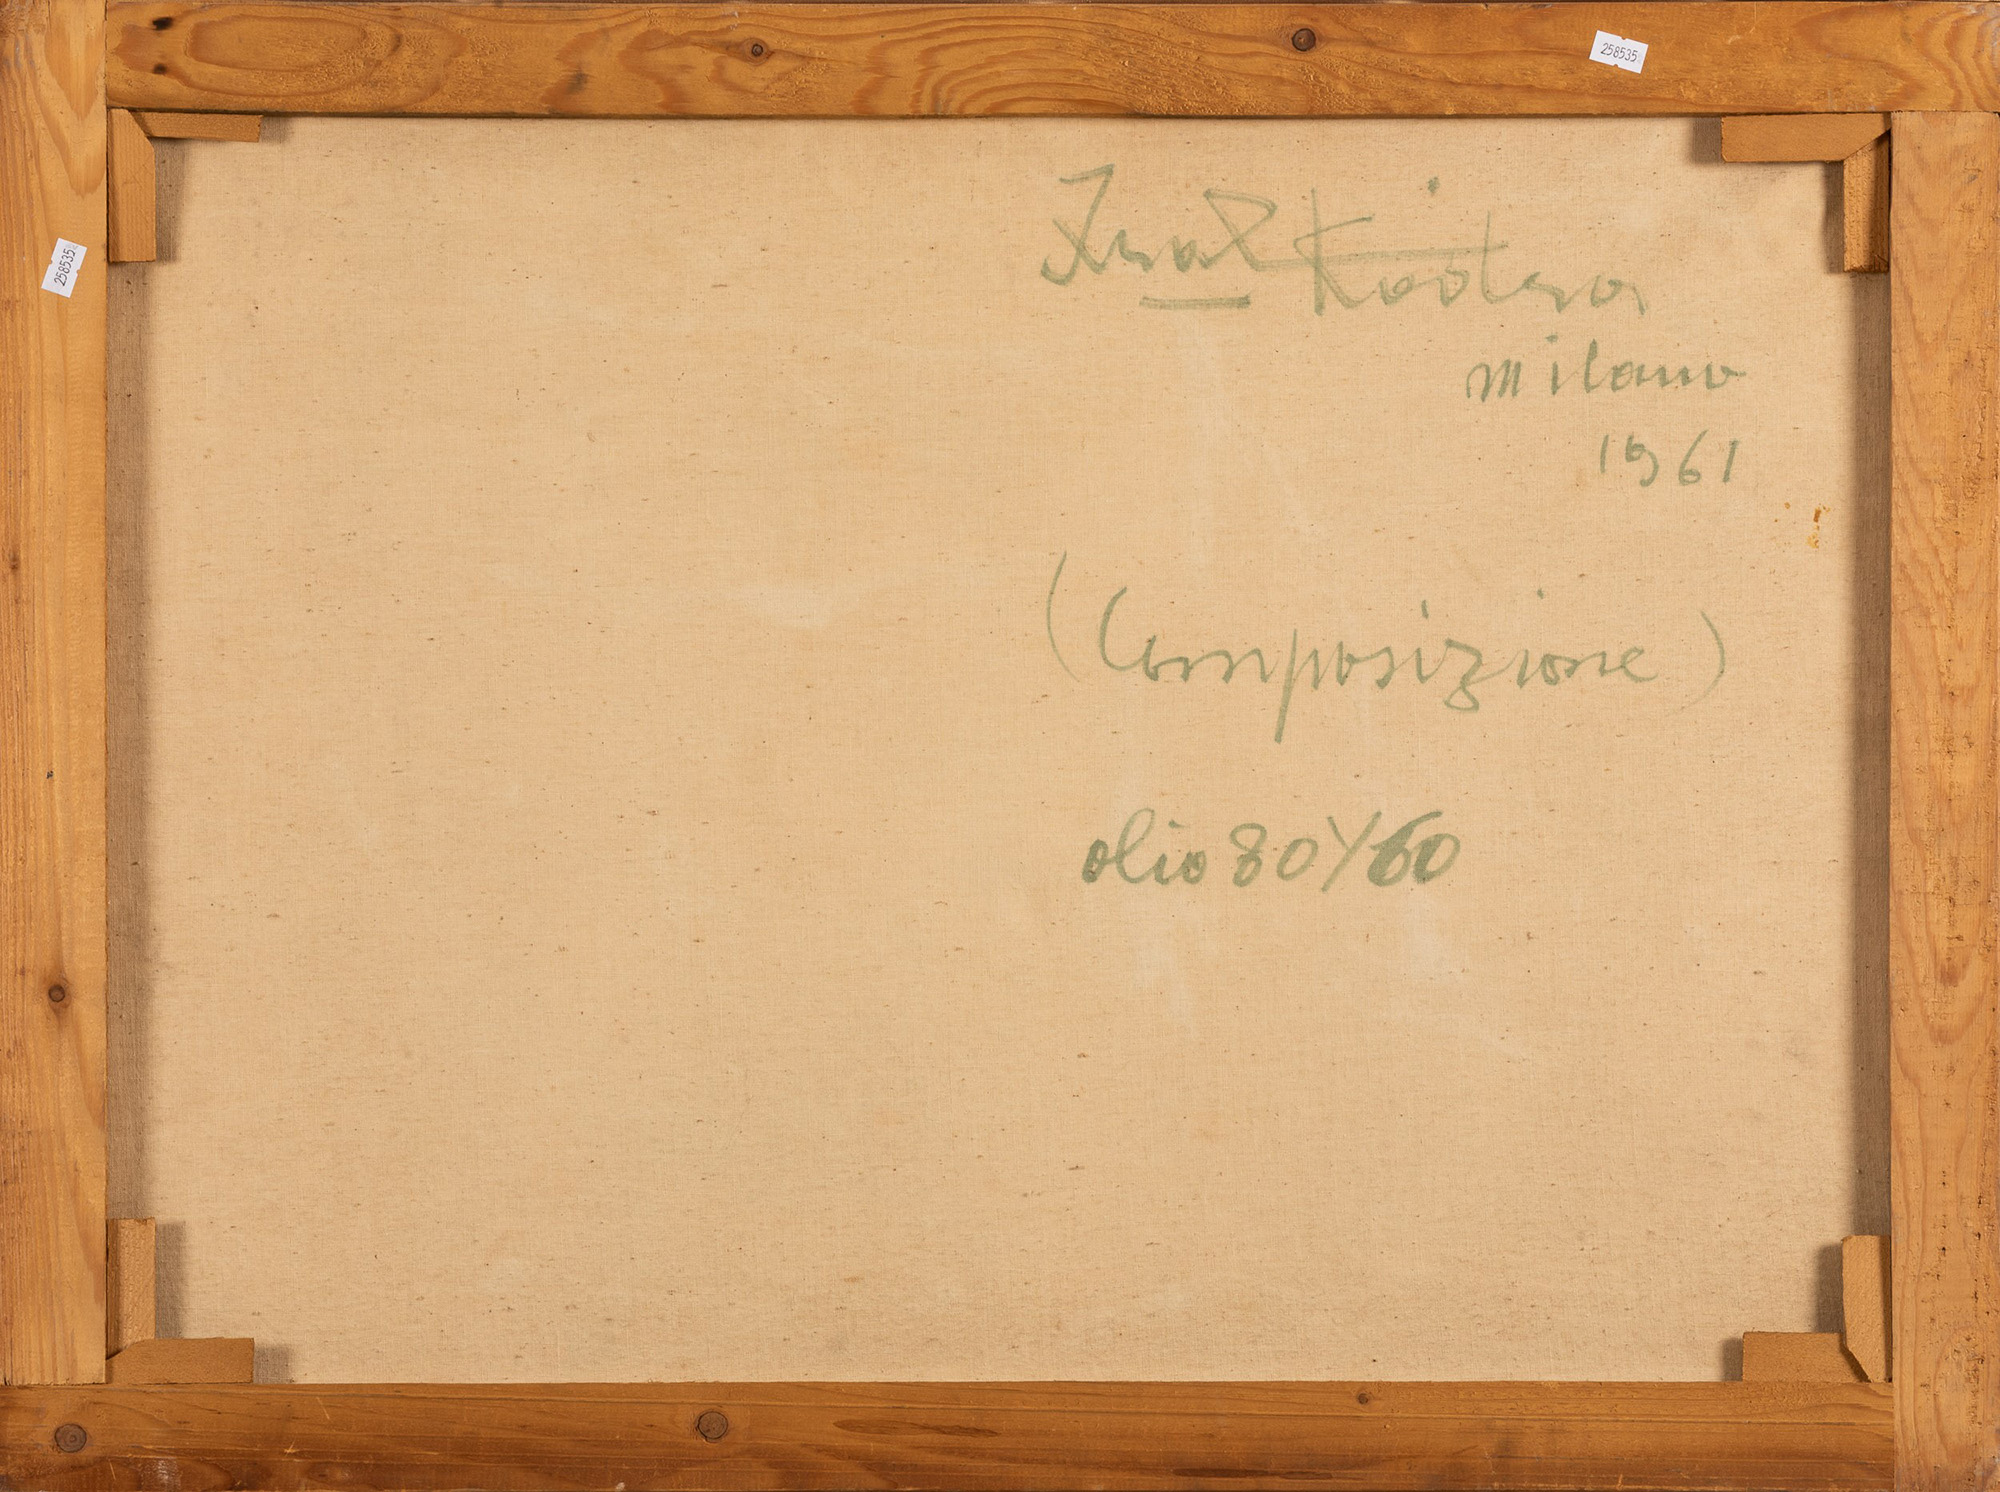 258535
258535
Ibrahim Kodra
milano
1961
(Composizione)
olio 80X60